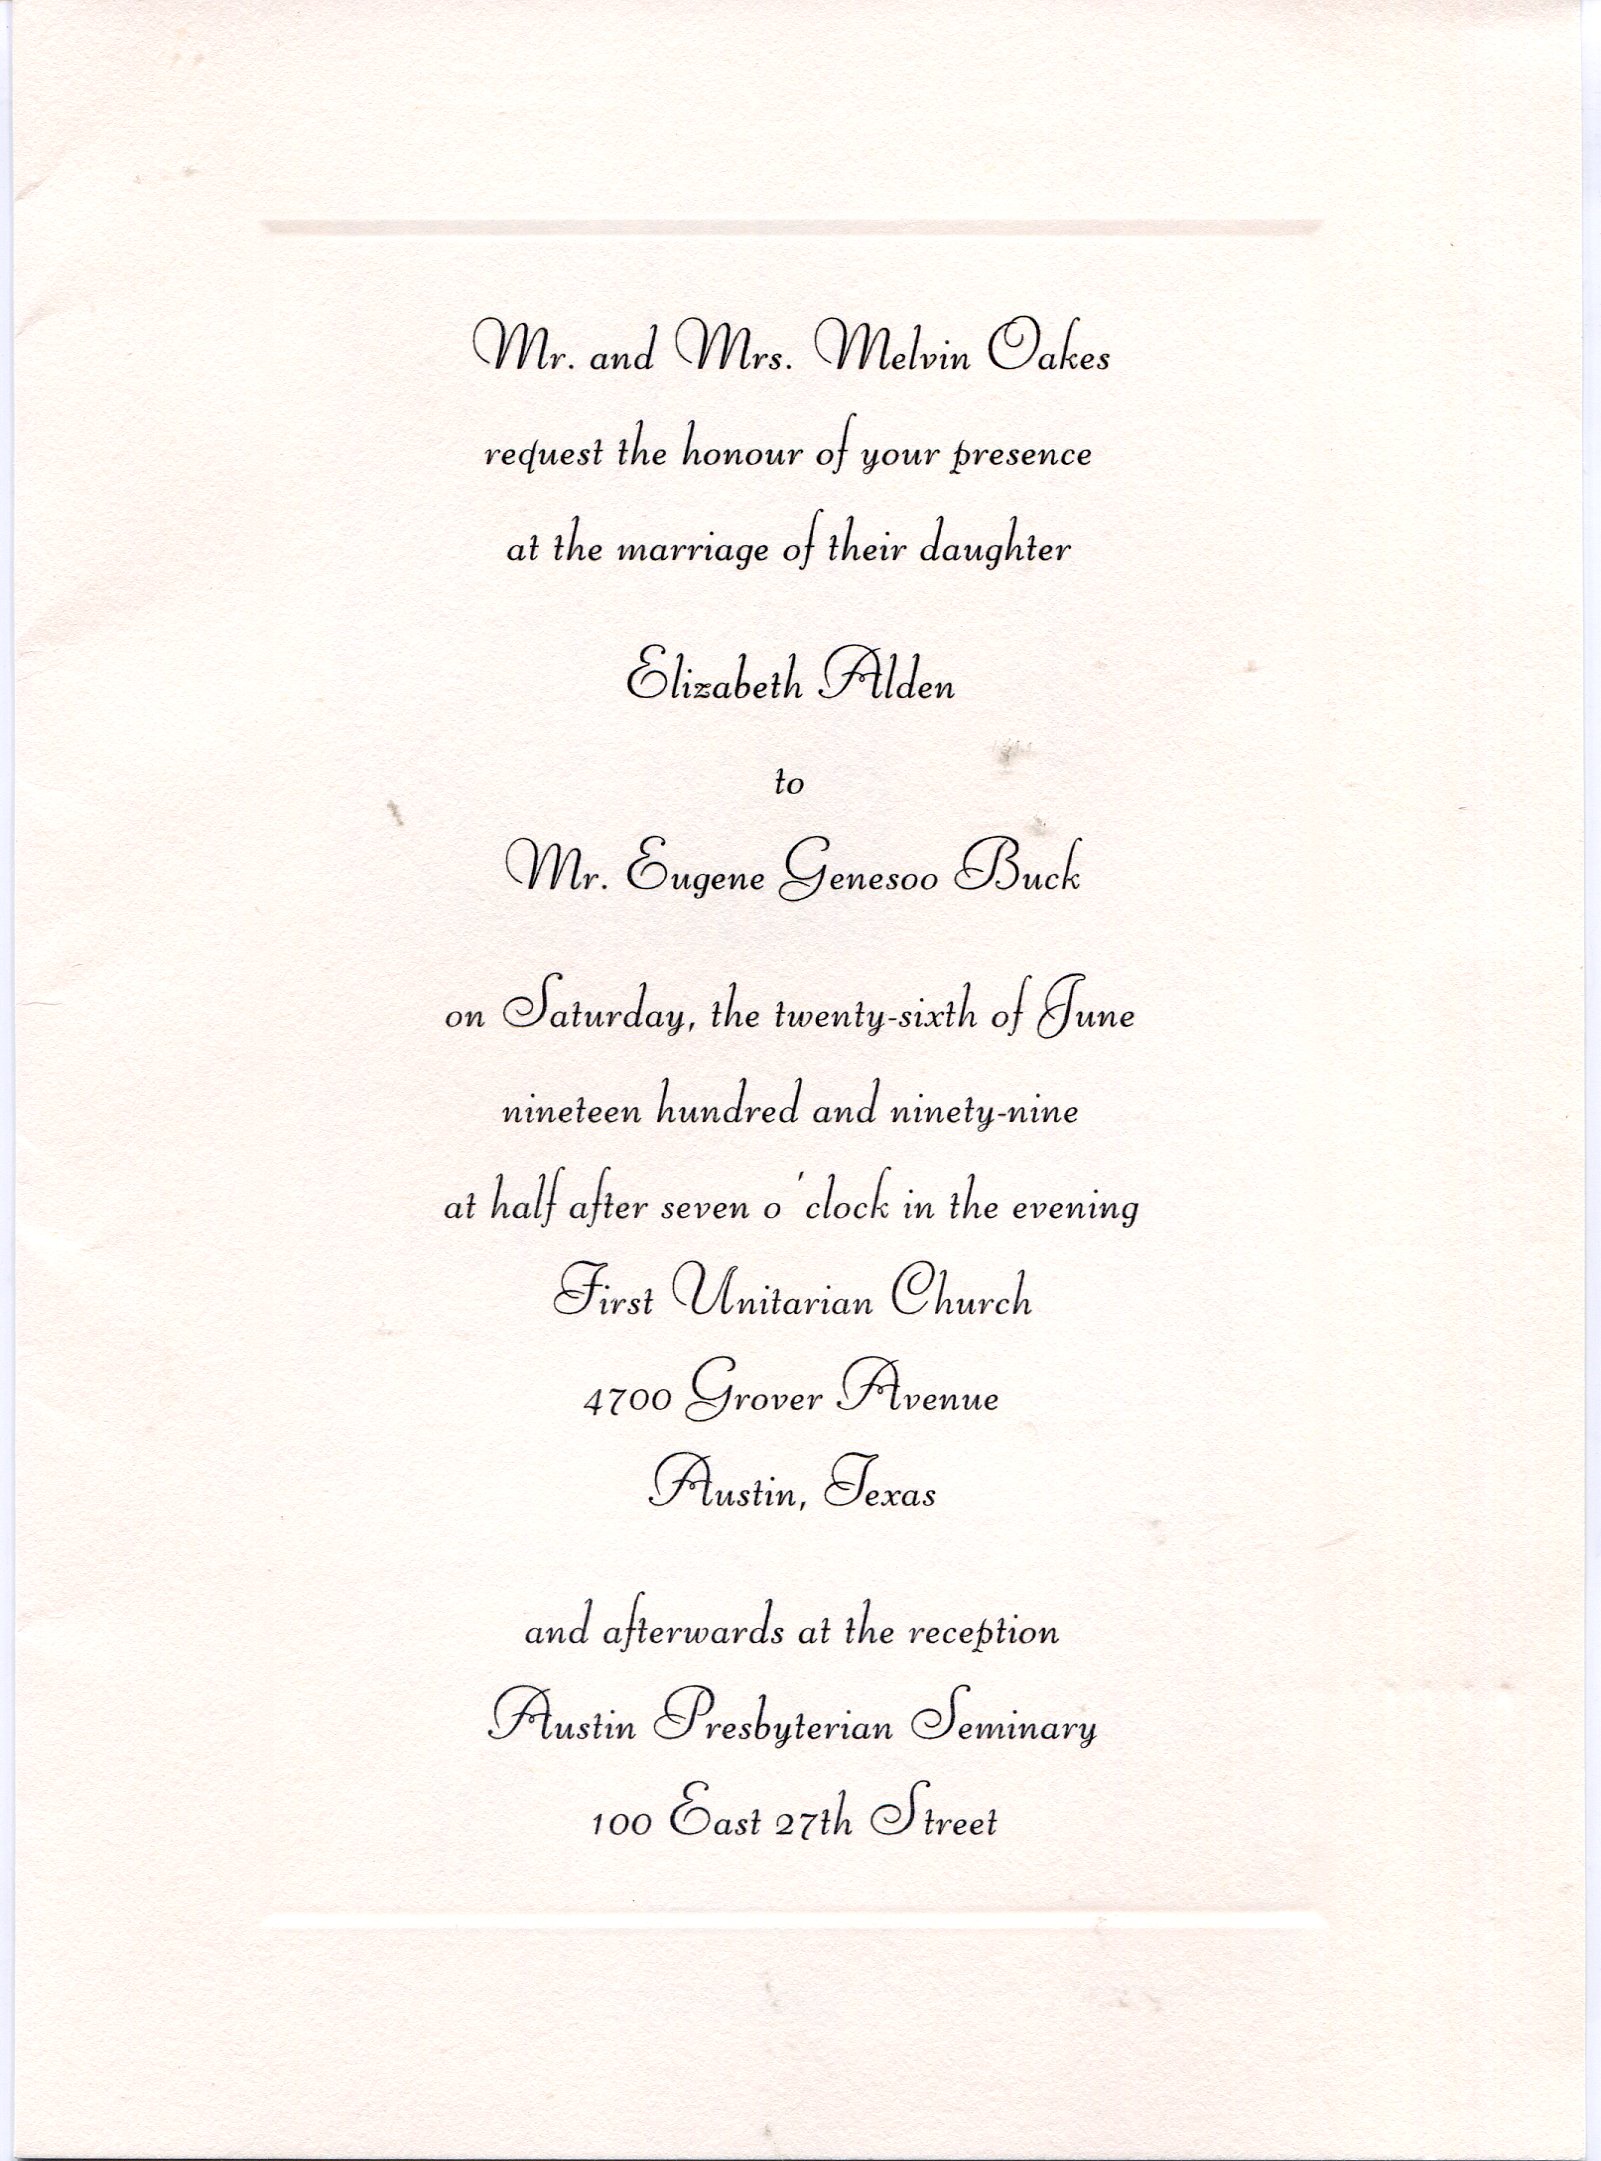 Mr. and Mrs. Melvin Oakes
request the honour of your presence
at the marriage of their daughter
Elizabeth Alden
to
Mr. Eugene Genesoo Buck
on Saturday, the twenty-sixth of June
nineteen hundred and ninety-nine
at half after seven o'clock in the evening
First Unitarian Church
4700 Grover Avenue
Austin, Texas
and afterwards at the reception
Austin Presbyterian Seminary
100 East 27th Street